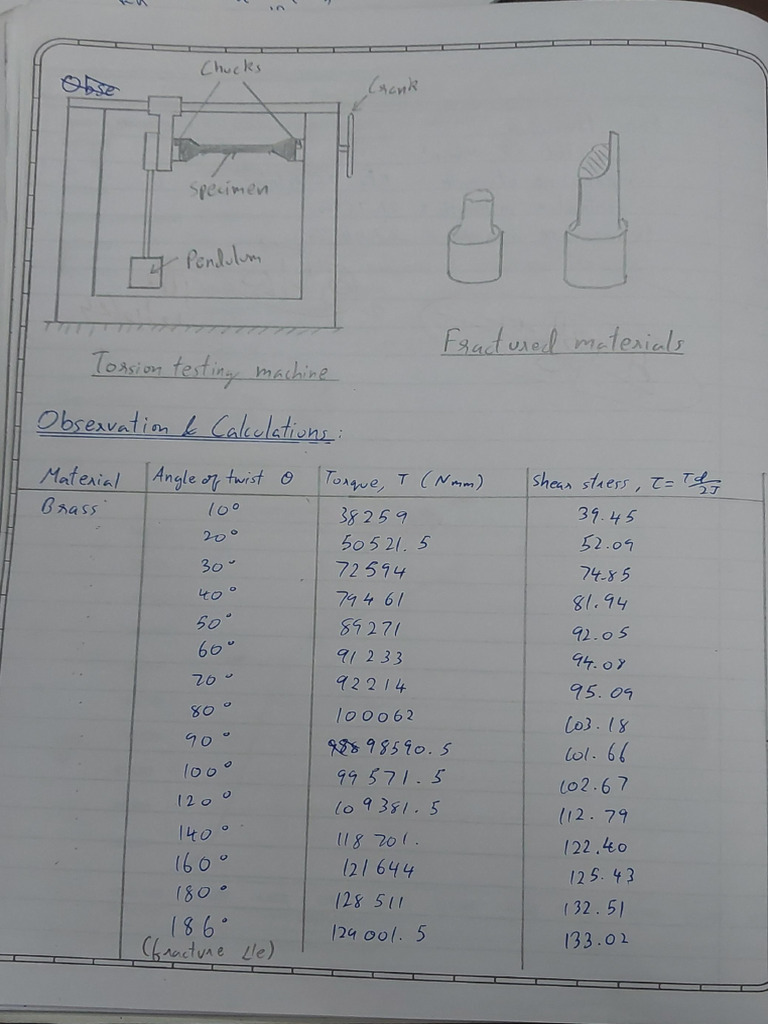 Obse
Chucks
Crank
Specimen
Pendulum
Torsion testing machine
Fractured materials
Observation & Calculations:
Material Angle of twist θ Torque, T (Nmm) Shear stress, τ = Td/2J
Brass 10° 38259 39.45
20° 50521.5 52.09
30° 72594 74.85
40° 79461 81.94
50° 89271 92.05
60° 91233 94.08
70° 92214 95.09
80° 100062 103.18
90° 98590.5 101.66
100° 99571.5 102.67
120° 109381.5 112.79
140° 118701. 122.40
160° 121644 125.43
180° 128511 132.51
186° 129001.5 133.02
(fracture ∠le)